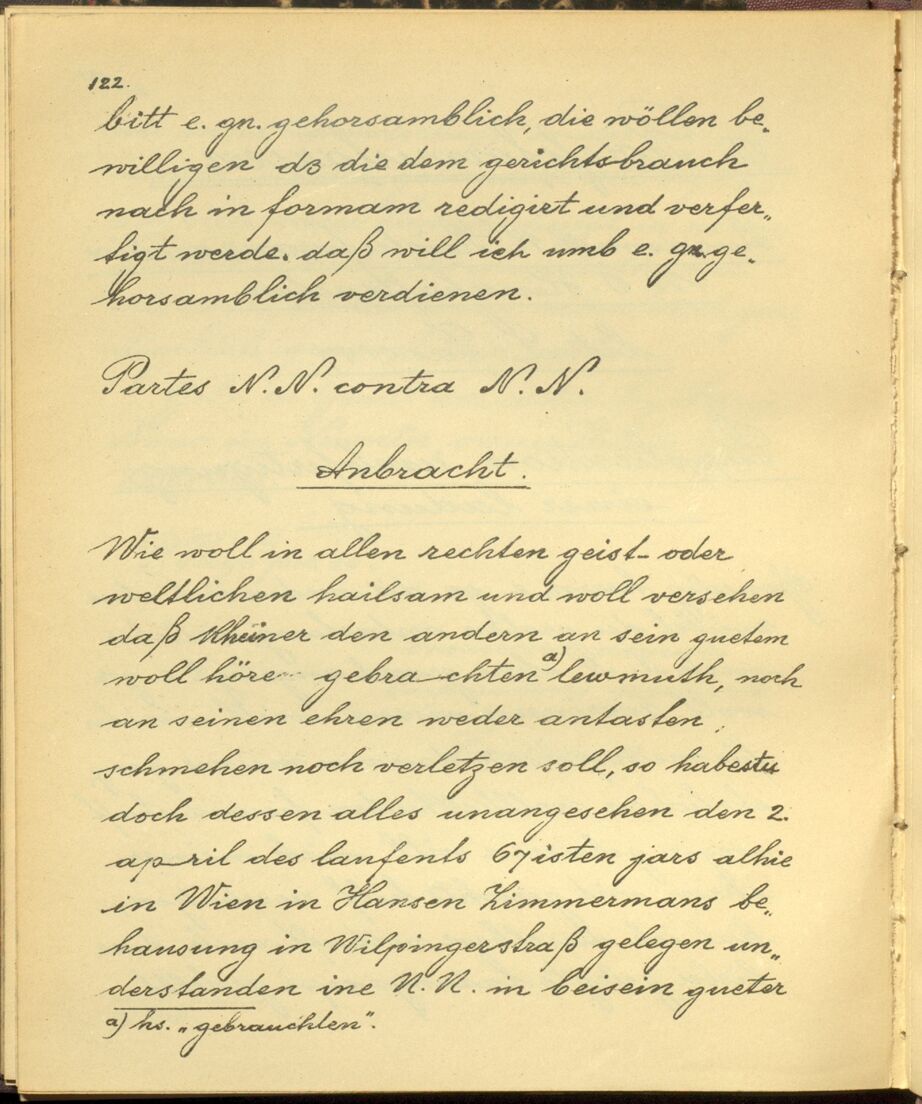 122.
bitt e. gn. gehorsamblich, die wöllen be„
willigen ds die dem gerichtsbrauch
nach in formam redigirt und verfer„
tigt werde. daß will ich umb e. gn. ge„
horsamblich verdienen.
Partes N. N. contra N. N.
Anbracht.
Wie woll in allen rechten geist- oder
weltlichen hailsam und woll versehen
daß kheiner den andern an sein guetem
woll höre gebrachten a) lewmuth, noch
an seinen ehren weder antasten,
schmehen noch verletzen soll, so habestu
doch dessen alles unangesehen den 2.
april des laufents 67isten jars alhie
in Wien in Hansen Zimmermans be„
hausung in Wilpingerstraß gelegen un„
derstanden ine N. N. in beisein gueter
a) hs. „gebrauchten".